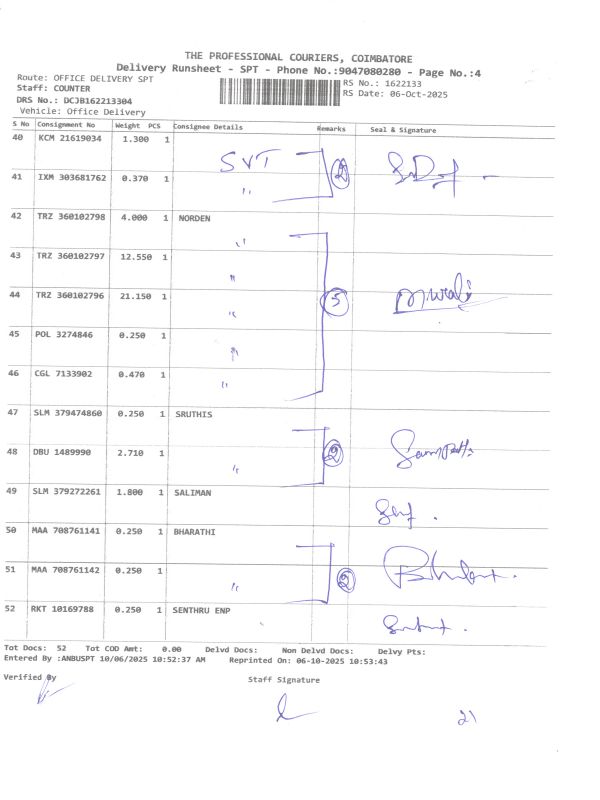 THE PROFESSIONAL COURIERS, COIMBATORE
Delivery Runsheet - SPT - Phone No.:9047080280 - Page No.:4
Route: OFFICE DELIVERY SPT RS No.: 1622133
Staff: COUNTER RS Date: 06-Oct-2025
DRS No.: DCJB162213304
Vehicle: Office Delivery
S No Consignment No Weight PCS Consignee Details Remarks Seal & Signature
40 KCM 21619034 1.300 1
SVT 2
41 IXM 303681762 0.370 1 "
42 TRZ 360102798 4.000 1 NORDEN
"
43 TRZ 360102797 12.550 1
"
44 TRZ 360102796 21.150 1 5
"
45 POL 3274846 0.250 1
"
46 CGL 7133902 0.470 1
"
47 SLM 379474860 0.250 1 SRUTHIS
48 DBU 1489990 2.710 1 2
"
49 SLM 379272261 1.800 1 SALIMAN
50 MAA 708761141 0.250 1 BHARATHI
51 MAA 708761142 0.250 1 2
"
52 RKT 10169788 0.250 1 SENTHRU ENP
Tot Docs: 52 Tot COD Amt: 0.00 Delvd Docs: Non Delvd Docs: Delvy Pts:
Entered By :ANBUSPT 10/06/2025 10:52:37 AM Reprinted On: 06-10-2025 10:53:43
Verified By Staff Signature